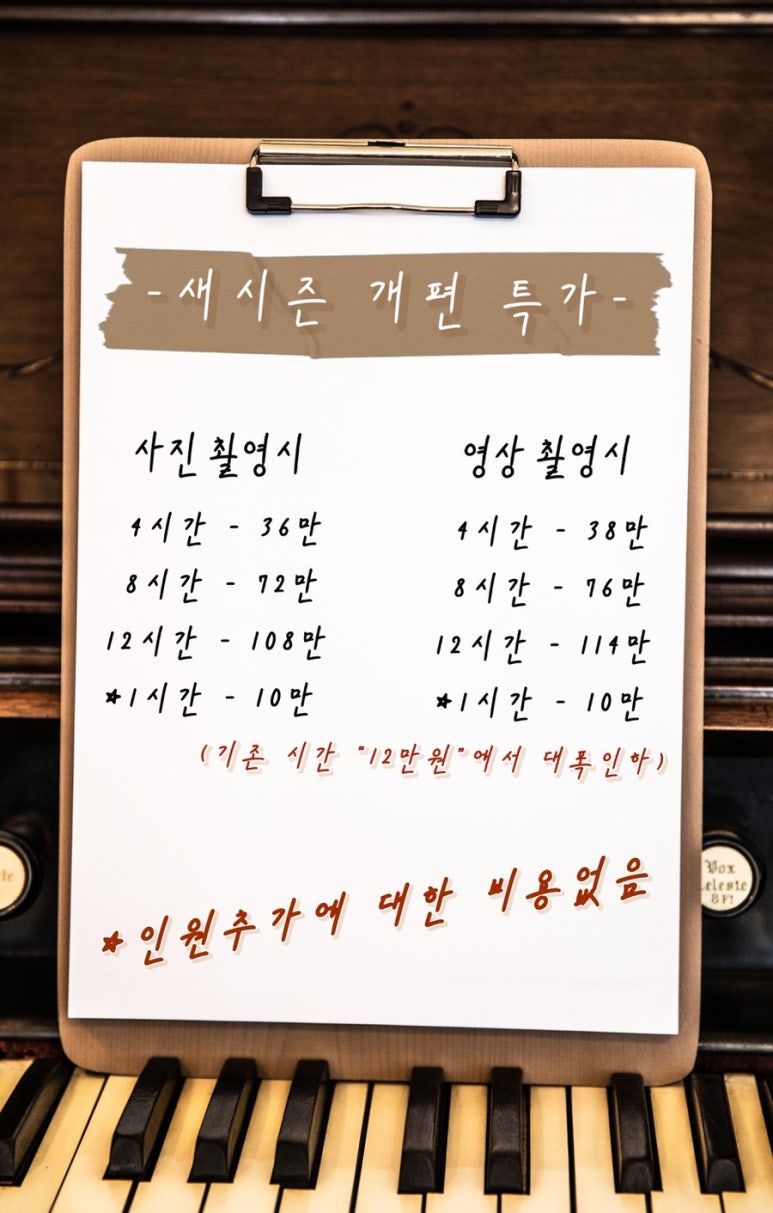 -새시즌 개편 특가-
사진촬영시
4시간 - 36만
8시간 - 72만
12시간 - 108만
★1시간 - 10만
영상촬영시
4시간 - 38만
8시간 - 76만
12시간 - 114만
★1시간 - 10만
(기존 시간 "12만원"에서 대폭인하)
★인원추가에 대한 비용없음
Vox
Celeste
8Ft